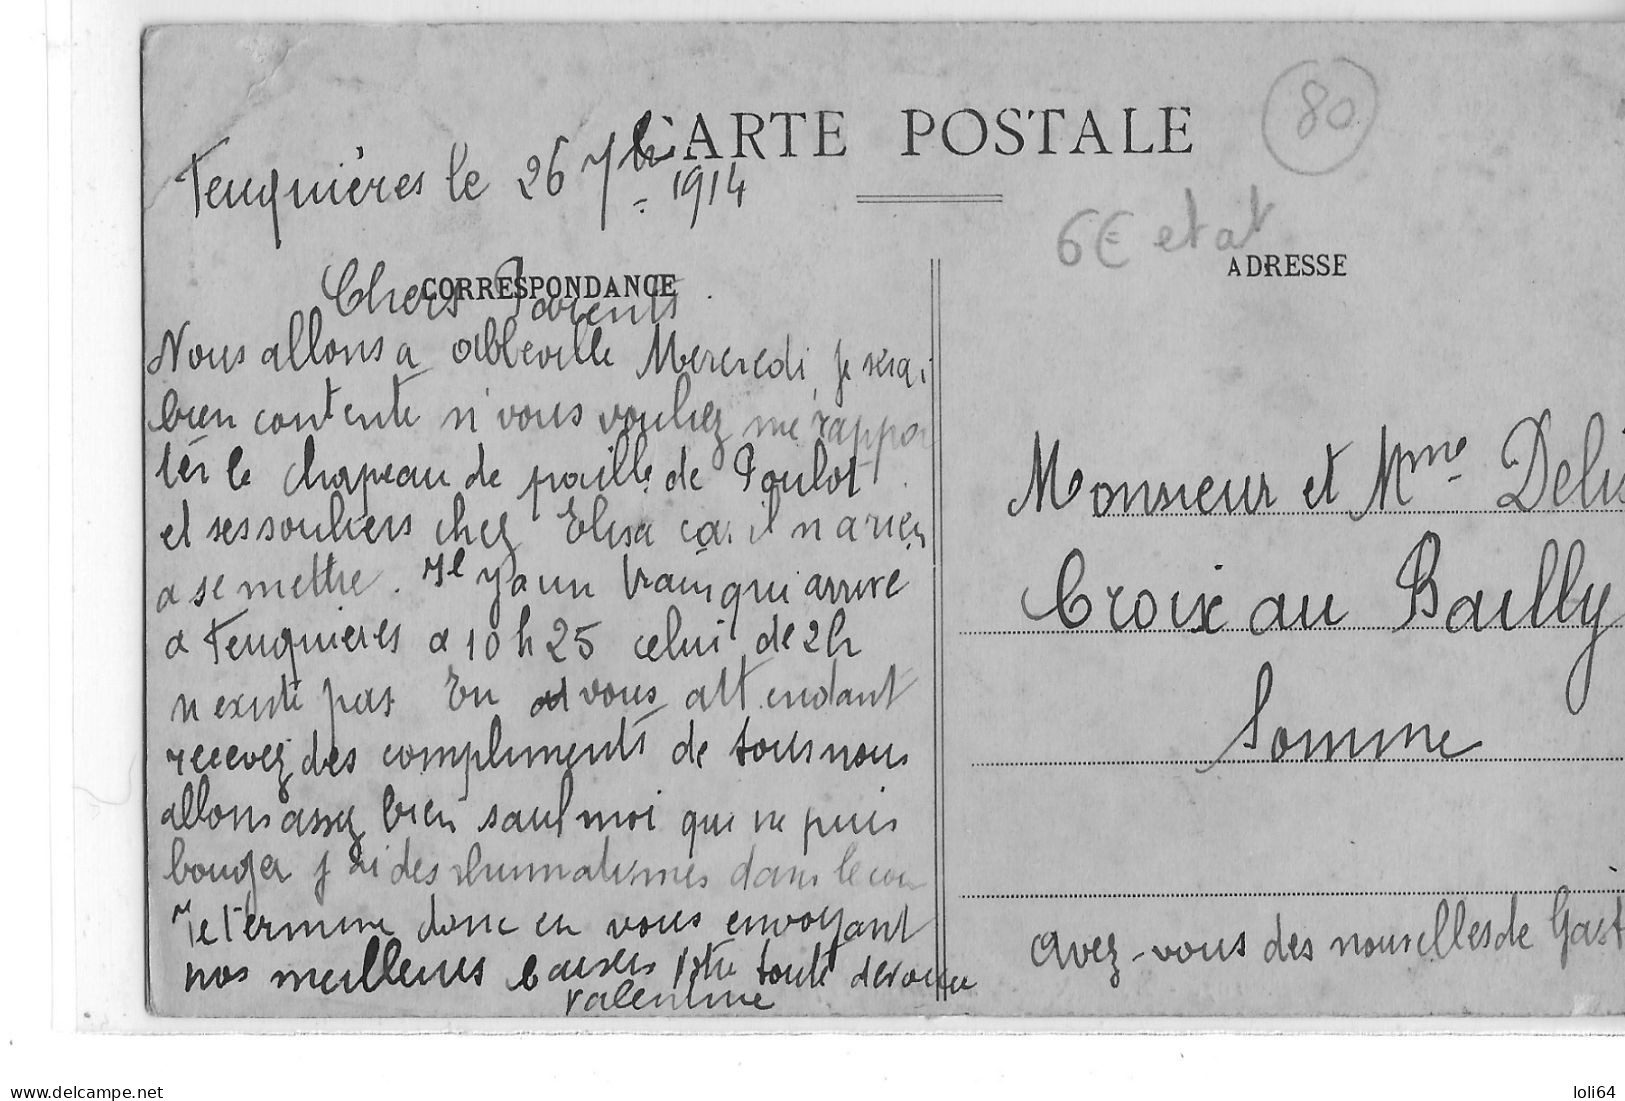 CARTE POSTALE
80
Feuquières le 26 7bre 1914
6€ etat
CORRESPONDANCE
ADRESSE
Chers Parents.
Nous allons a abbeville Mercredi, je serai
bien contente si vous vouliez me rappor
ter le chapeau de paille de Loulot
et ses souliers chez Elisa car il n a rien
a se mettre. Il y a un train qui arrive
a Feuquieres a 10 h 25 celui de 2h
n existe pas En vous attendant
recevez des compliments de tous nous
allons assez bien sauf moi que ne puis
bouger j ai des rhumatismes dans le cou
Je termine donc en vous envoyant
nos meilleurs baisers Votre toute dévouée
Valentine
Monsieur et Mme
Croix au Bailly
Somme
avez-vous des nouvelles de Gast
www.delcampe.net
loli64